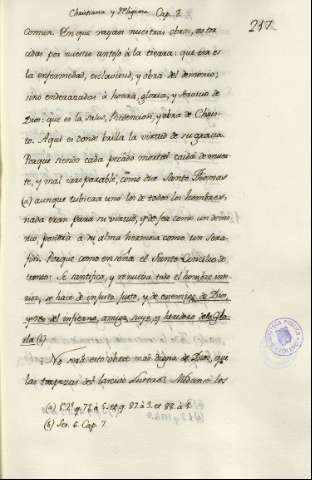 Christiana y Religiosa Cap. 2.
217.
comun. En que vayan nuestras obras, no tor
cidas por nuestro antojo à la tierra: que esa es
la enfermedad, esclavitud, y obra del demonio;
sino enderezadas à honra, gloria, y servicio de
Dios: que es la salud, Redencion, y obra de Chris-
to. Aqui es donde brilla la virtud de su gracia.
Porque siendo cada pecado mortal caida de muer
te, y mal irreparable, como dice Santo Thomas
(a) aunque tubiera uno los de todos los hombres,
nada eran para su virtud, q de feo como un demo-
nio, pondria à su alma hermosa como un sera-
fin. Porque como enseña el Santo Concilio de
Trento: Se santifica, y renueva todo el hombre inte
rior, se hace de injusto justo, y de enemigo de Dios,
del infierno, amigo suyo, y heredero de la Glo-
ria (b)
No será esto obra mas digna de Dios, que
las de los
(a) 1.ª 2.ª q. 78 à 5. et q. 87. à 3. et 88. à 8.
(b) Ses. 6. Cap. 7.